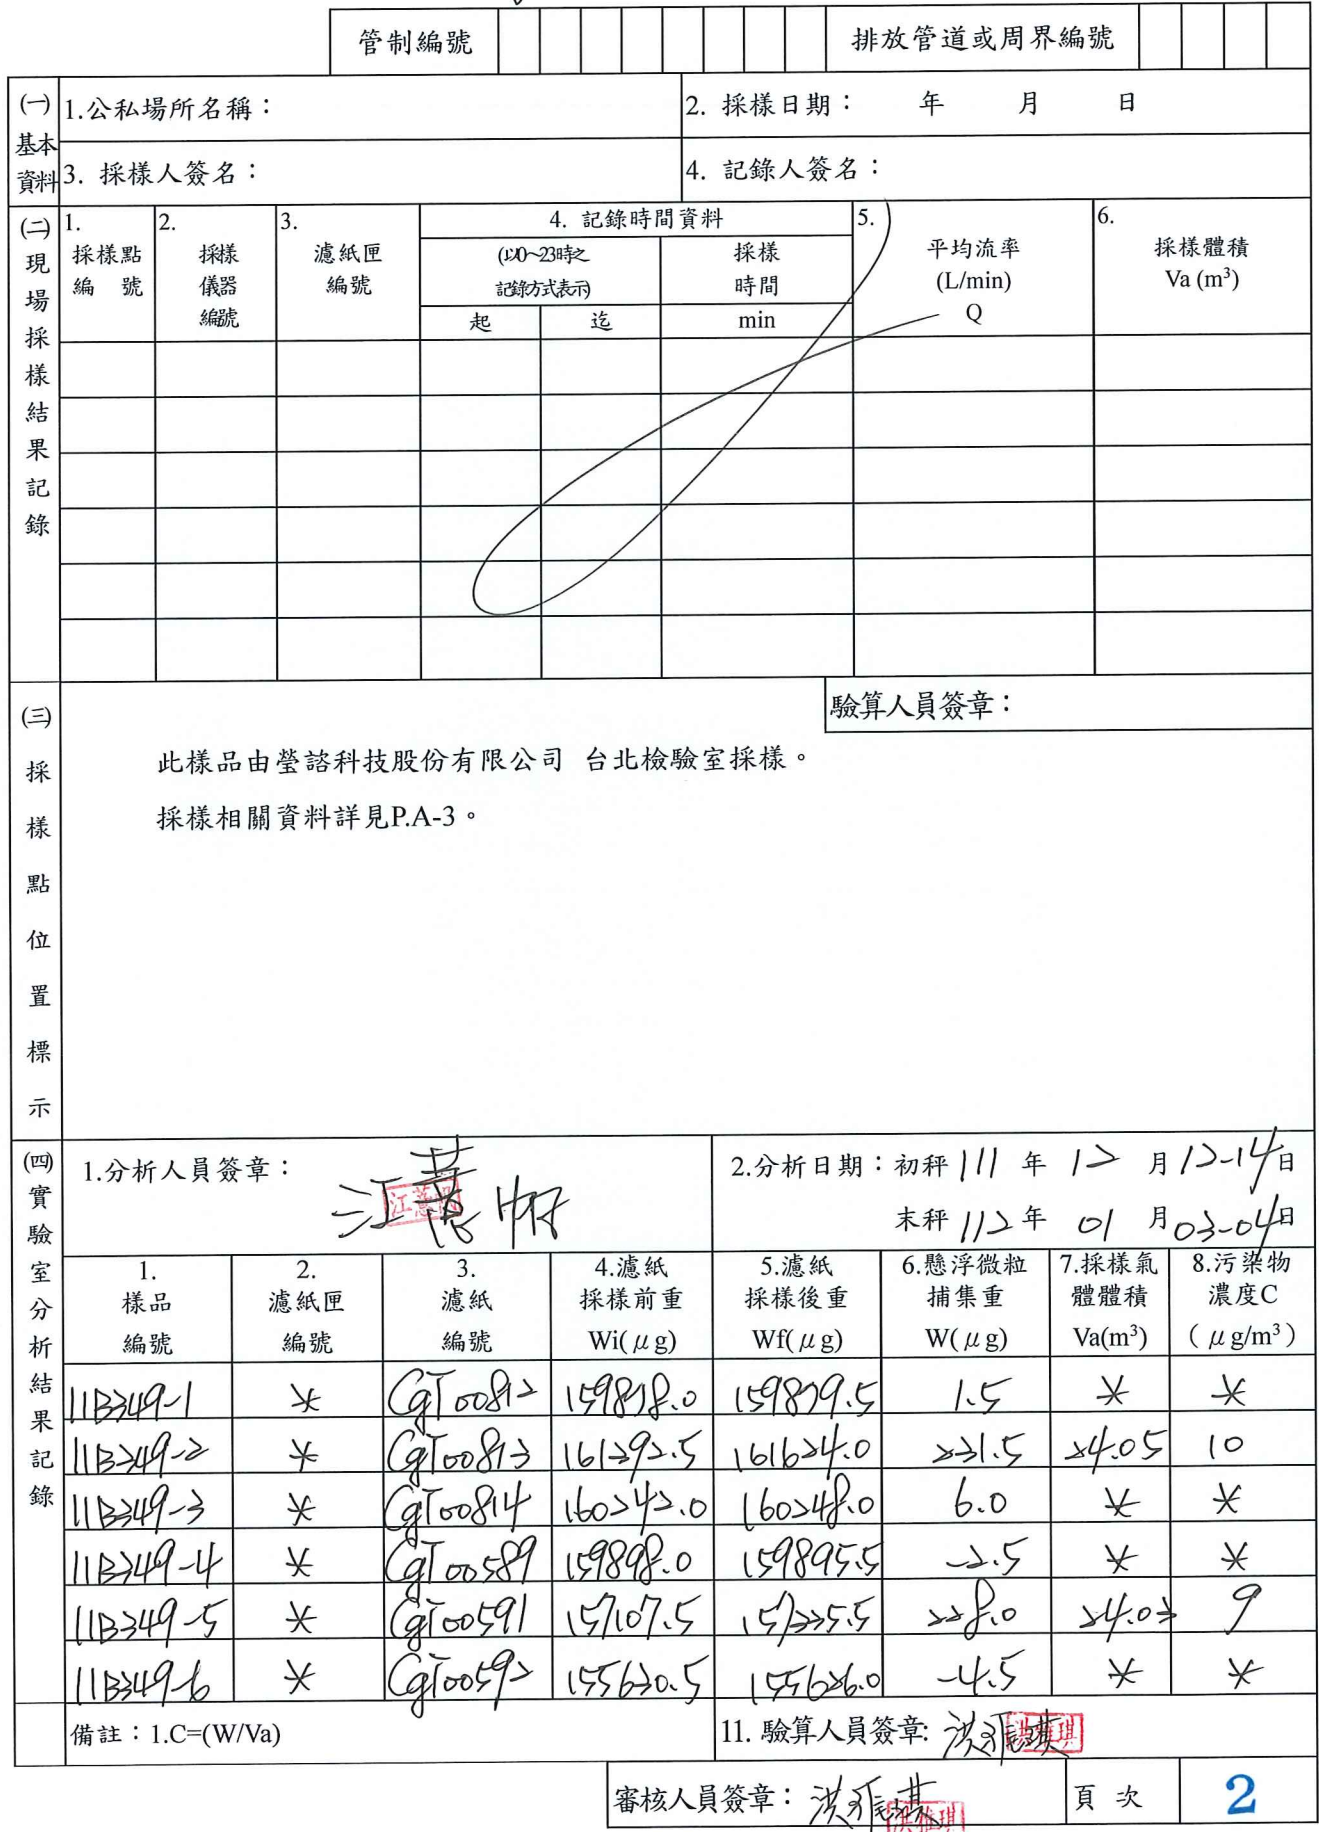 管制編號 排放管道或周界編號
(一)基本資料 1.公私場所名稱： 2. 採樣日期： 年 月 日
3. 採樣人簽名： 4. 記錄人簽名：
(二)現場採樣結果記錄
1. 採樣點編 號 2. 採樣儀器編號 3. 濾紙匣編號 4. 記錄時間資料 5. 平均流率 (L/min) Q 6. 採樣體積 Va (m³)
(以0~23時之記錄方式表示) 採樣時間
起 迄 min
(三)採樣點位置標示
驗算人員簽章：
此樣品由瑩諮科技股份有限公司 台北檢驗室採樣。
採樣相關資料詳見P.A-3。
(四)實驗室分析結果記錄
1.分析人員簽章： 2.分析日期：初秤 111 年 12 月 12-14 日
末秤 112 年 01 月 03-04 日
1. 樣品編號 2. 濾紙匣編號 3. 濾紙編號 4.濾紙採樣前重 Wi(μg) 5.濾紙採樣後重 Wf(μg) 6.懸浮微粒捕集重 W(μg) 7.採樣氣體體積 Va(m³) 8.污染物濃度C (μg/m³)
11B349-1 * CgT00812 159878.0 159879.5 1.5 * *
11B349-2 * CgT00813 161392.5 161624.0 231.5 24.05 10
11B349-3 * CgT00814 160242.0 160248.0 6.0 * *
11B349-4 * CgT00589 159898.0 159895.5 -2.5 * *
11B349-5 * CgT00591 157107.5 157335.5 228.0 24.02 9
11B349-6 * CgT00592 155630.5 155626.0 -4.5 * *
備註：1.C=(W/Va) 11. 驗算人員簽章: 洪雅琪
審核人員簽章：洪雅琪 頁 次 2